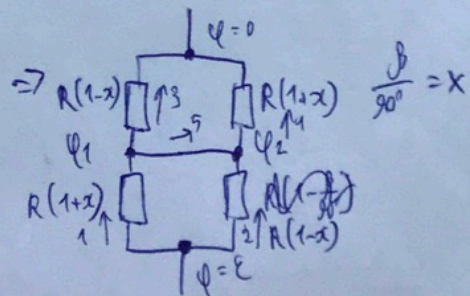 φ=0
=> R(1-x) ↑3 R(1+x) ↑4 β/90° = x
φ1 →5 φ2
R(1+x) ↑ 1
2 ↑ R(1-x)
φ=ε